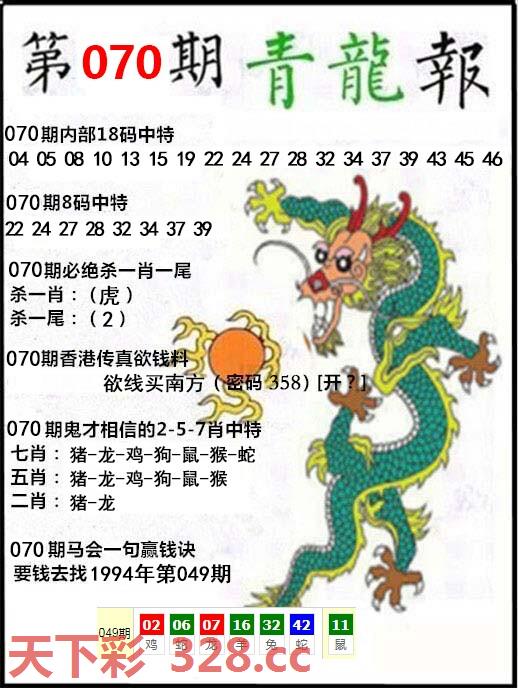 第070期青龍報
070期内部18码中特
04 05 08 10 13 15 19 22 24 27 28 32 34 37 39 43 45 46
070期8码中特
22 24 27 28 32 34 37 39
070期必绝杀一肖一尾
杀一肖：（虎）
杀一尾：（2）
070期香港传真欲钱料
欲线买南方（密码 358）[开？]
070期鬼才相信的2-5-7肖中特
七肖：猪-龙-鸡-狗-鼠-猴-蛇
五肖：猪-龙-鸡-狗-鼠-猴
二肖：猪-龙
070期马会一句赢钱诀
要钱去找1994年第049期
049期 02 06 07 16 32 42 11
鸡 蛇 龙 羊 兔 蛇 鼠
天下彩 328.cc